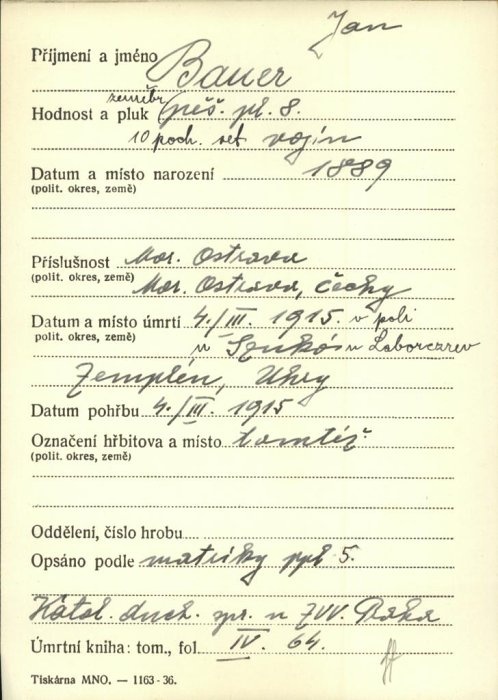 Jan
Příjmení a jméno Bauer
zeměbr.
Hodnost a pluk pěš. pl. 8.
10 poch. set. vojín
Datum a místo narození 1889
(polit. okres, země)
Příslušnost Mor. Ostrava
(polit. okres, země) Mor. Ostrava, Čechy
Datum a místo úmrtí 4./III. 1915 v poli
polit. okres, země) u Szukó, u Laborczrev
Zemplén, Uhry
Datum pohřbu 4./III. 1915
Označení hřbitova a místo tamtéž
(polit. okres, země)
Oddělení, číslo hrobu
Opsáno podle matriky ppl 5.
Katol. duch. spr. u ZVV. Praha
Úmrtní kniha: tom., fol. IV. 64.
Tiskárna MNO. — 1163-36.